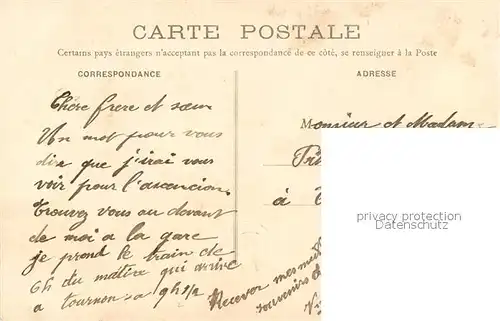 CARTE POSTALE
Certains pays étrangers n'acceptant pas la correspondance de ce côté, se renseigner à la Poste
CORRESPONDANCE
ADRESSE
Chère frere et sœur
Un mot pour vous
dir que j'irai vous
voir pour l'ascencion
Trouvez vous au devant
de moi a la gare
je prend le train de
6h du matin qui arrive
a tournon a 9h 1/2
Recever mes
souvenirs
Monsieur et Madame
à
privacy protection
Datenschutz